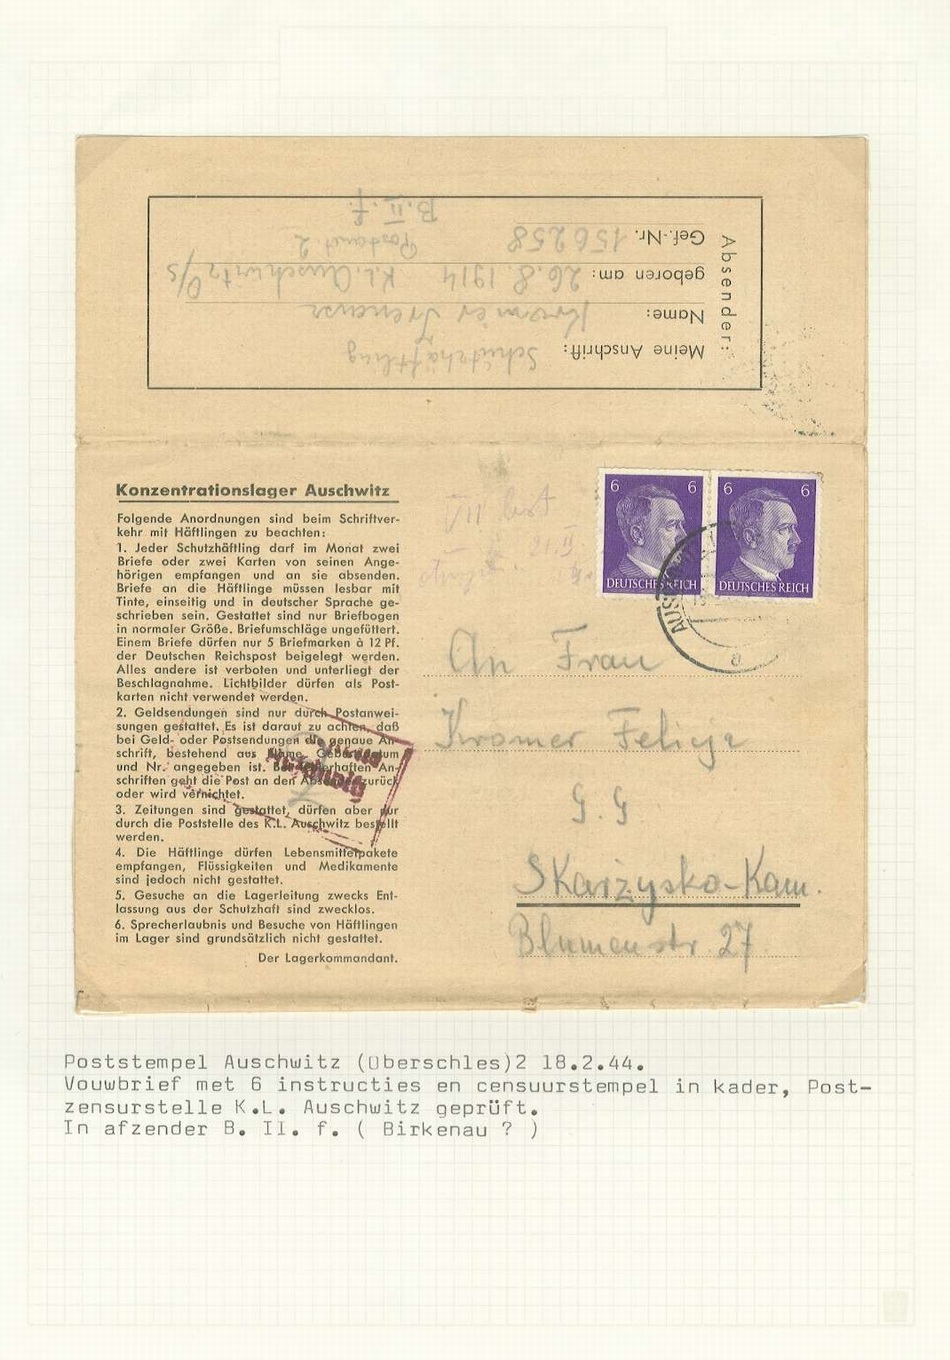 Absender:
Meine Anschrift: Schutzhäftling
Name: Kromer Ireneusz
geboren am: 26.8.1914 K.L. Auschwitz O/S
Gef.-Nr. 156258 Postamt 2
B.II.f.
Konzentrationslager Auschwitz
Folgende Anordnungen sind beim Schriftver-
kehr mit Häftlingen zu beachten:
1. Jeder Schutzhäftling darf im Monat zwei
Briefe oder zwei Karten von seinen Ange-
hörigen empfangen und an sie absenden.
Briefe an die Häftlinge müssen lesbar mit
Tinte, einseitig und in deutscher Sprache ge-
schrieben sein. Gestattet sind nur Briefbogen
in normaler Größe. Briefumschläge ungefüttert.
Einem Briefe dürfen nur 5 Briefmarken à 12 Pf.
der Deutschen Reichspost beigelegt werden.
Alles andere ist verboten und unterliegt der
Beschlagnahme. Lichtbilder dürfen als Post-
karten nicht verwendet werden.
2. Geldsendungen sind nur durch Postanwei-
sungen gestattet. Es ist darauf zu achten, daß
bei Geld- oder Postsendungen die genaue An-
schrift, bestehend aus Name, Geburtsdatum
und Nr. angegeben ist. Bei fehlerhaften An-
schriften geht die Post an den Absender zurück
oder wird vernichtet.
3. Zeitungen sind gestattet, dürfen aber nur
durch die Poststelle des K.L. Auschwitz bestellt
werden.
4. Die Häftlinge dürfen Lebensmittelpakete
empfangen, Flüssigkeiten und Medikamente
sind jedoch nicht gestattet.
5. Gesuche an die Lagerleitung zwecks Ent-
lassung aus der Schutzhaft sind zwecklos.
6. Sprecherlaubnis und Besuche von Häftlingen
im Lager sind grundsätzlich nicht gestattet.
Der Lagerkommandant.
6 6
DEUTSCHES REICH
6 6
DEUTSCHES REICH
a
An Frau
Kromer Felicja
G.G
Skarżysko-Kam.
Blumenstr 27
Poststempel Auschwitz (Oberschles)2 18.2.44.
Vouwbrief met 6 instructies en censuurstempel in kader, Post-
zensurstelle K.L. Auschwitz geprüft.
In afzender B. II. f. ( Birkenau ? )